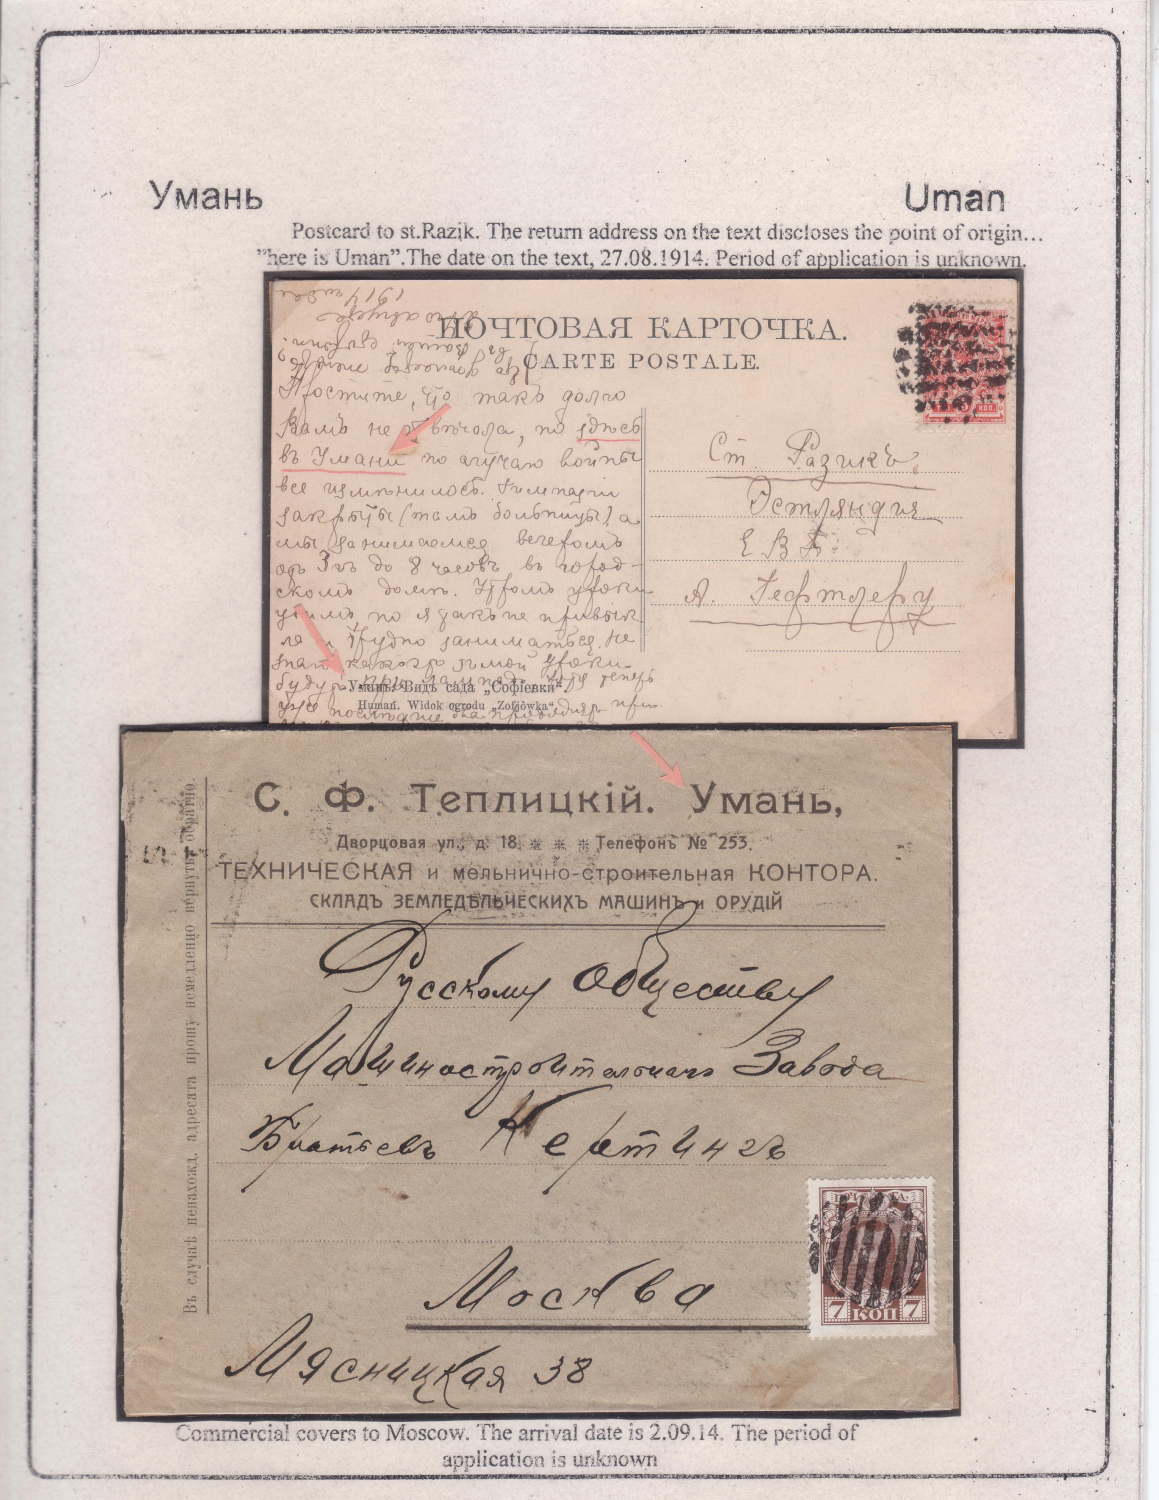 Умань Uman
Postcard to st.Razik. The return address on the text discloses the point of origin...
"here is Uman".The date on the text, 27.08.1914. Period of application is unknown.
1914 года
августа
ПОЧТОВАЯ КАРТОЧКА.
CARTE POSTALE.
Простите, что такъ долго
Вамъ не отвѣчала, но здѣсь
въ Умани по случаю войны
все измѣнилось. Гимназіи
закрыты (тамъ больницы), а
мы занимаемся вечеромъ
до 8 часовъ въ город-
скомъ домѣ. Утромъ уроки
учимъ, но я такъ не привык
ла и трудно заниматься. Не
знаю какого зимой уроки
будутъ при теперь
Умань. Видъ сада „Софіевки“
Humań. Widok ogrodu „Zofjówka“.
Ст. Разикъ.
Эстляндия
Е В Б.
А. Гефтлеру
КОП
С. Ф. Теплицкій. Умань,
Дворцовая ул., д. 18. * * * Телефонъ № 253.
ТЕХНИЧЕСКАЯ и мельнично-строительная КОНТОРА.
СКЛАДЪ ЗЕМЛЕДѢЛЬЧЕСКИХЪ МАШИНЪ и ОРУДІЙ
Въ случаѣ ненахожд. адресата прошу немедленно вернуть обратно.
Русскому Обществу
Машиностроительнаго Завода
Братьевъ Кертингъ
Москва
Мясницкая 38
7 КОП 7
Commercial covers to Moscow. The arrival date is 2.09.14. The period of
application is unknown